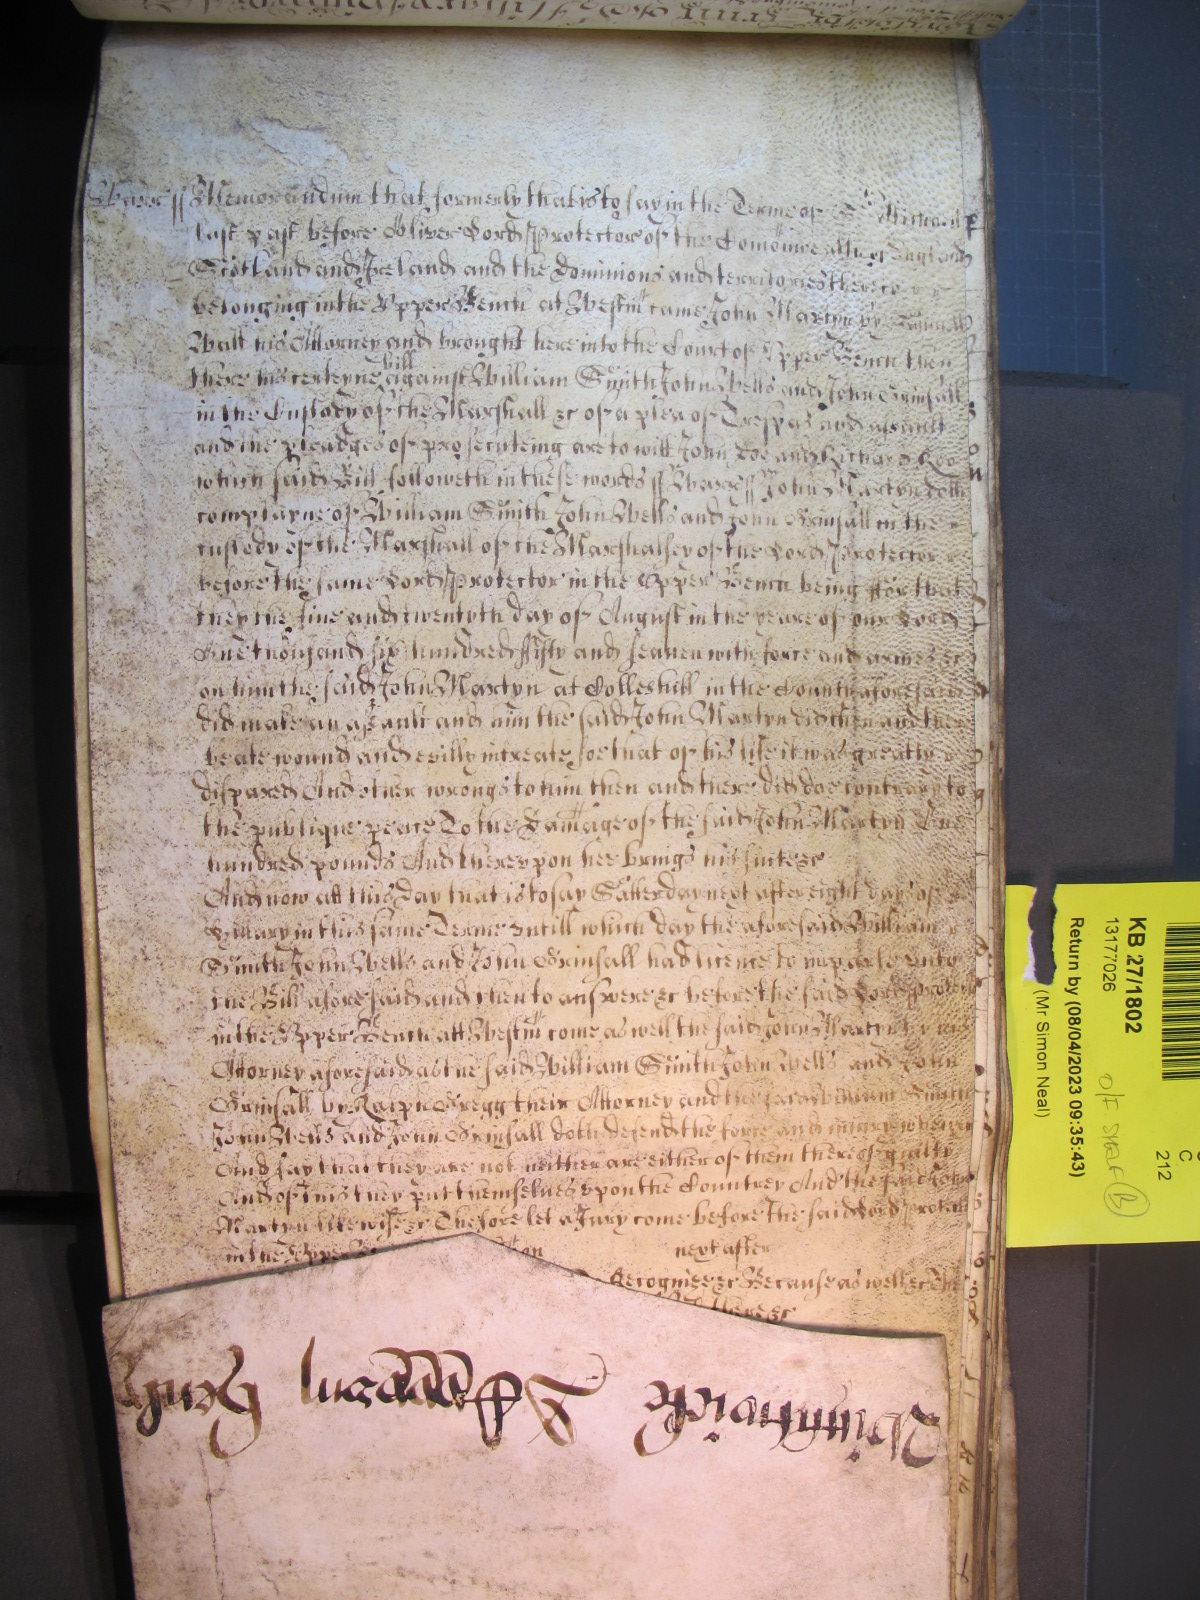 Warr ss Memorandum that formerly that is to say in the Terme of St Michaell
last past before Oliver Lord Protector of the Comonwealth of England
Scotland and Ireland and the Dominions and territories thereto
belonging in the Upper Bench at Westm came John Martyn by
Walt his Attorney and brought here into the Court of Upper Bench then
there his certeyne bill against William Smith John Wells and John Grinsall
in the Custody of the Marshall &c of a plea of Trespas and assault
and the pledges of prosecuteing are to witt John Doe and Richard Roo
which said Bill followeth in these words ss Warr ss John Martyn doth
complayne of William Smith John Wells and John Grinsall in the
custody of the Marshall of the Marshalsey of the Lord Protector
before the same Lord Protector in the Upper Bench being ffor that
they the five and twentyth day of August in the yeare of our Lord
One thousand six hundred ffifty and seaven with force and armes &c
on him the said John Martyn at Colleshill in the County aforesaid
did make an assault and him the said John Martyn did then and there
beate wound and evilly intreate soe that of his life it was greatly
dispared And other wrongs to him then and there did doe contrary to
the publique peace To the Damage of the said John Martyn One
hundred pounds And thereupon hee brings his suite &c
And now att this Day that is to say Satterday next after eight dayes of
Hillary in this same Terme untill which day the aforesaid William
Smith John Wells and John Grinsall had licence to imparle unto
the Bill aforesaid and then to answere &c before the said Lord Protector
in the Upper Bench att Westm come as well the said John Martyn by his
Attorney aforesaid as the said William Smith John Wells and John
Grinsall by Ralph Gregg their Attorney and the said William Smith
John Wells and John Grinsall doth defend the force and injury when &c
And say that they are not neither are either of them thereof guilty
And of this they put themselves upon the Countrey And the said John
Martyn likewise &c Therefore let a Jury come before the said Lord Protector
in the Upper on next after
Recognize &c Because as well &c The
there &c
KB 27/1802
13177026
Return by (08/04/2023 09:35:43)
(Mr Simon Neal)
C
212